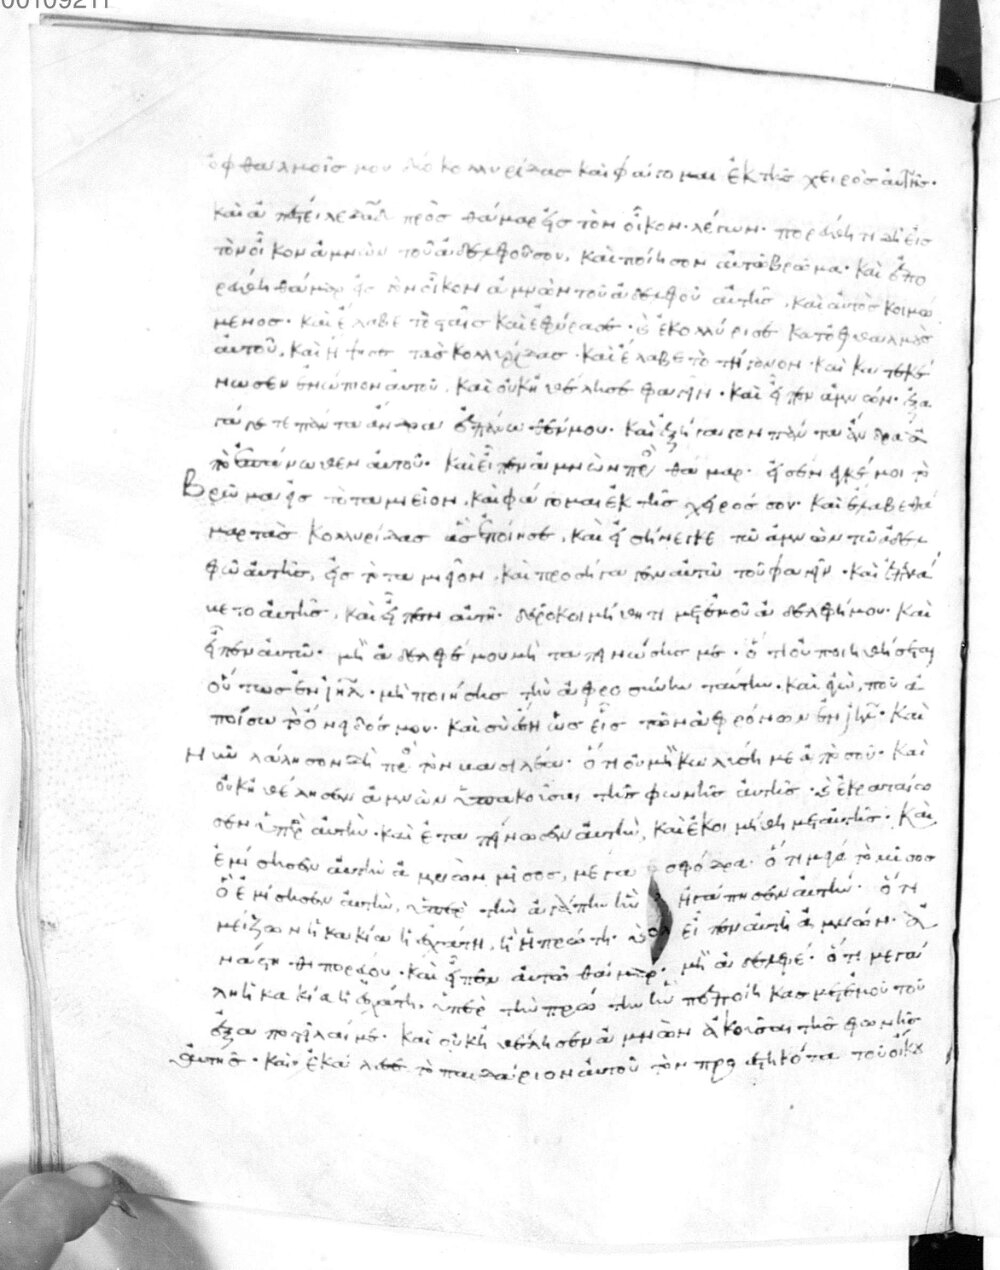 00109211
ὀφθαλμοῖς μου δύο κολλυρίδας καὶ φάγομαι ἐκ τῆς χειρὸς αὐτῆς·
καὶ ἀπέστειλε δᾱδ πρὸς θάμαρ εἰς τὸν οἶκον· λέγων· πορεύθητι δὴ εἰς
τὸν οἶκον ἀμνὼν τοῦ ἀδελφοῦ σου, καὶ ποίησον αὐτῶ βρῶμα· καὶ ἐπο
ρεύθη θάμαρ εἰς τὸν οἶκον ἀμνὼν τοῦ ἀδελφοῦ αὐτῆς, καὶ αὐτὸς κοιμώ
μενος· καὶ ἔλαβε τὸ σταῖς καὶ ἐφύρασε· καὶ ἐκολλύρισε κατ' ὀφθαλμοὺς
αὐτοῦ, καὶ ἥψησε τὰς κολλυρίδας· καὶ ἔλαβε τὸ τήγανον· καὶ κατεκέ
νωσεν ἐνώπιον αὐτοῦ, καὶ οὐκ ἠθέλησε φαγεῖν· καὶ εἶπεν ἀμνών· ἐξα
γάγετε πάντα ἄνδρα ἐπάνωθέν μου· καὶ ἐξήγαγον πάντα ἄνδρα ἀ
πὸ ἐπάνωθεν αὐτοῦ· καὶ εἶπεν ἀμνὼν πρὸς θάμαρ· εἰσένεγκέ μοι τὸ
βρῶμα εἰς τὸ ταμιεῖον, καὶ φάγομαι ἐκ τῆς χειρός σου· καὶ ἔλαβε θά
μαρ τὰς κολλυρίδας ἃς ἐποίησε, καὶ εἰσήνεγκε τῶ ἀμνὼν τῶ ἀδελ
φῶ αὐτῆς, εἰς τὸ ταμιεῖον, καὶ προσήγαγεν αὐτῶ τοῦ φαγεῖν· καὶ ἐπελά
βετο αὐτῆς, καὶ εἶπεν αὐτῆ· δεῦρο κοιμήθητι μετ' ἐμοῦ ἀδελφή μου· καὶ
εἶπεν αὐτῶ· μὴ ἀδελφέ μου μὴ ταπεινώσης με· ὅτι οὐ ποιηθήσεται
οὕτως ἐν ἰη̄λ· μὴ ποιήσης τὴν ἀφροσύνην ταύτην· καὶ ἐγὼ, ποῦ ἀ
ποίσω τὸ ὄνειδός μου· καὶ σὺ ἔση ὡς εἷς τῶν ἀφρόνων ἐν ἰη̄λ· καὶ
νῦν λάλησον δὴ πρὸς τὸν βασιλέα· ὅτι οὐ μὴ κωλύση με ἀπὸ σοῦ· καὶ
οὐκ ἠθέλησεν ἀμνὼν ὑπακοῦσαι τῆς φωνῆς αὐτῆς· καὶ ἐκραταίω
σεν ὑπὲρ αὐτὴν· καὶ ἐταπείνωσεν αὐτὴν, καὶ ἐκοιμήθη μετ' αὐτῆς· καὶ
ἐμίσησεν αὐτὴν ἀμνὼν μῖσος, μέγα σφόδρα· ὅτι μέγα τὸ μῖσος
ὃ ἐμίσησεν αὐτὴν, ὑπὲρ τὴν ἀγάπην ἣν ἠγάπησεν αὐτήν· ὅτι
μείζων ἡ κακία ἡ ἐσχάτη, ἢ ἡ πρώτη· καὶ εἶπεν αὐτῆ ἀμνών· ἀ
νάστηθι πορεύου· καὶ εἶπεν αὐτῶ θάμαρ· μὴ ἀδελφέ· ὅτι μεγά
λη ἡ κακία ἡ ἐσχάτη, ὑπὲρ τὴν πρώτην ἣν πεποίηκας μετ' ἐμοῦ τοῦ
ἐξαποστεῖλαί με· καὶ οὐκ ἠθέλησεν ἀμνὼν ἀκοῦσαι τῆς φωνῆς
αὐτῆς· καὶ ἐκάλεσε τὸ παιδάριον αὐτοῦ τὸν προεστηκότα τοῦ οἴκου